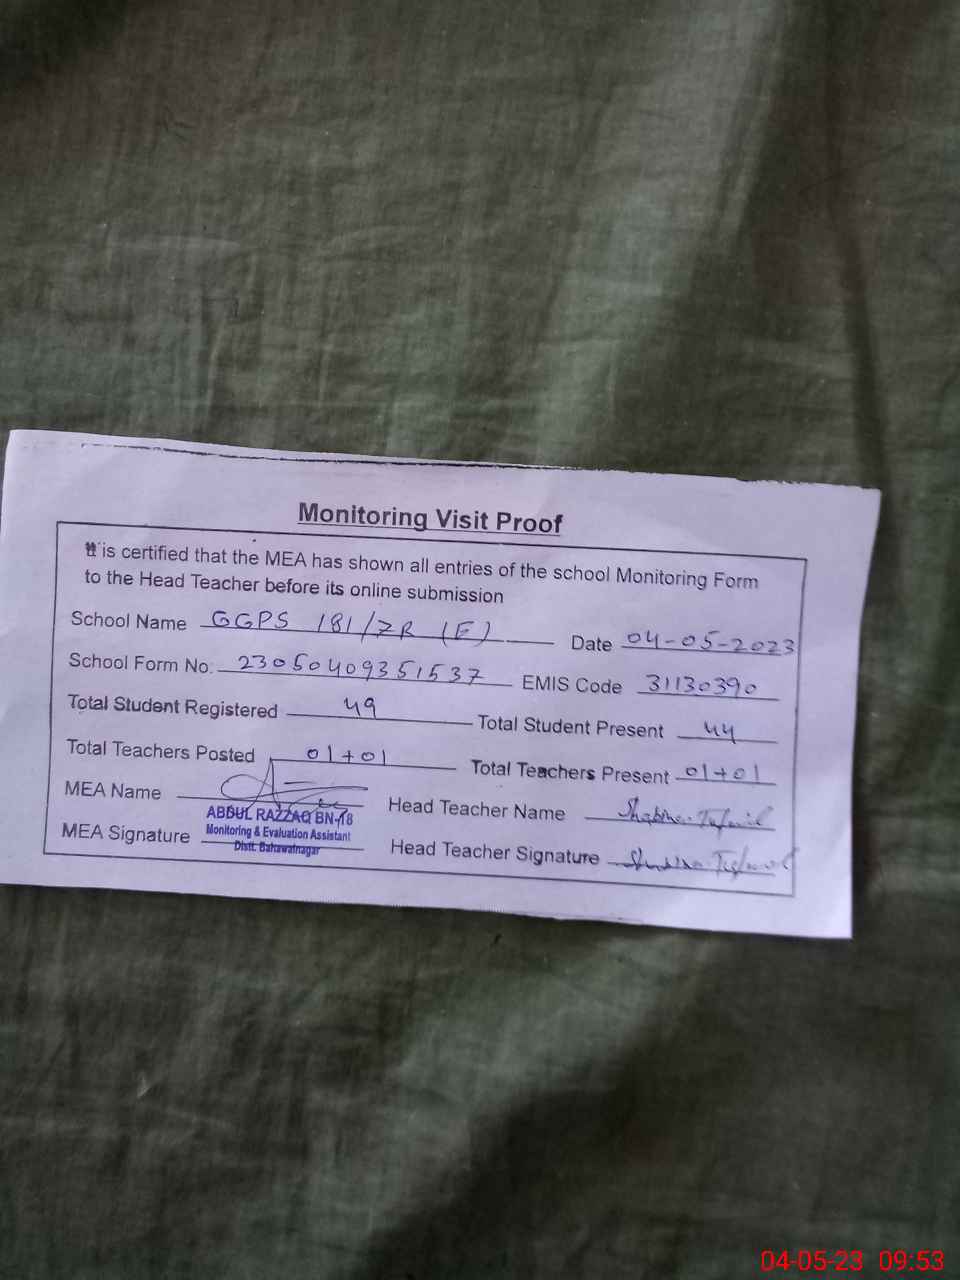 Monitoring Visit Proof
It is certified that the MEA has shown all entries of the school Monitoring Form
to the Head Teacher before its online submission
School Name GGPS 181/7R (E) Date 04-05-2023
School Form No: 23050409351537 EMIS Code 31130390
Total Student Registered 49 Total Student Present 44
Total Teachers Posted 01+01 Total Teachers Present 01+01
MEA Name Head Teacher Name
ABDUL RAZZAQ BN-18
MEA Signature Monitoring & Evaluation Assistant Head Teacher Signature
Distt. Bahawalnagar
04-05-23 09:53